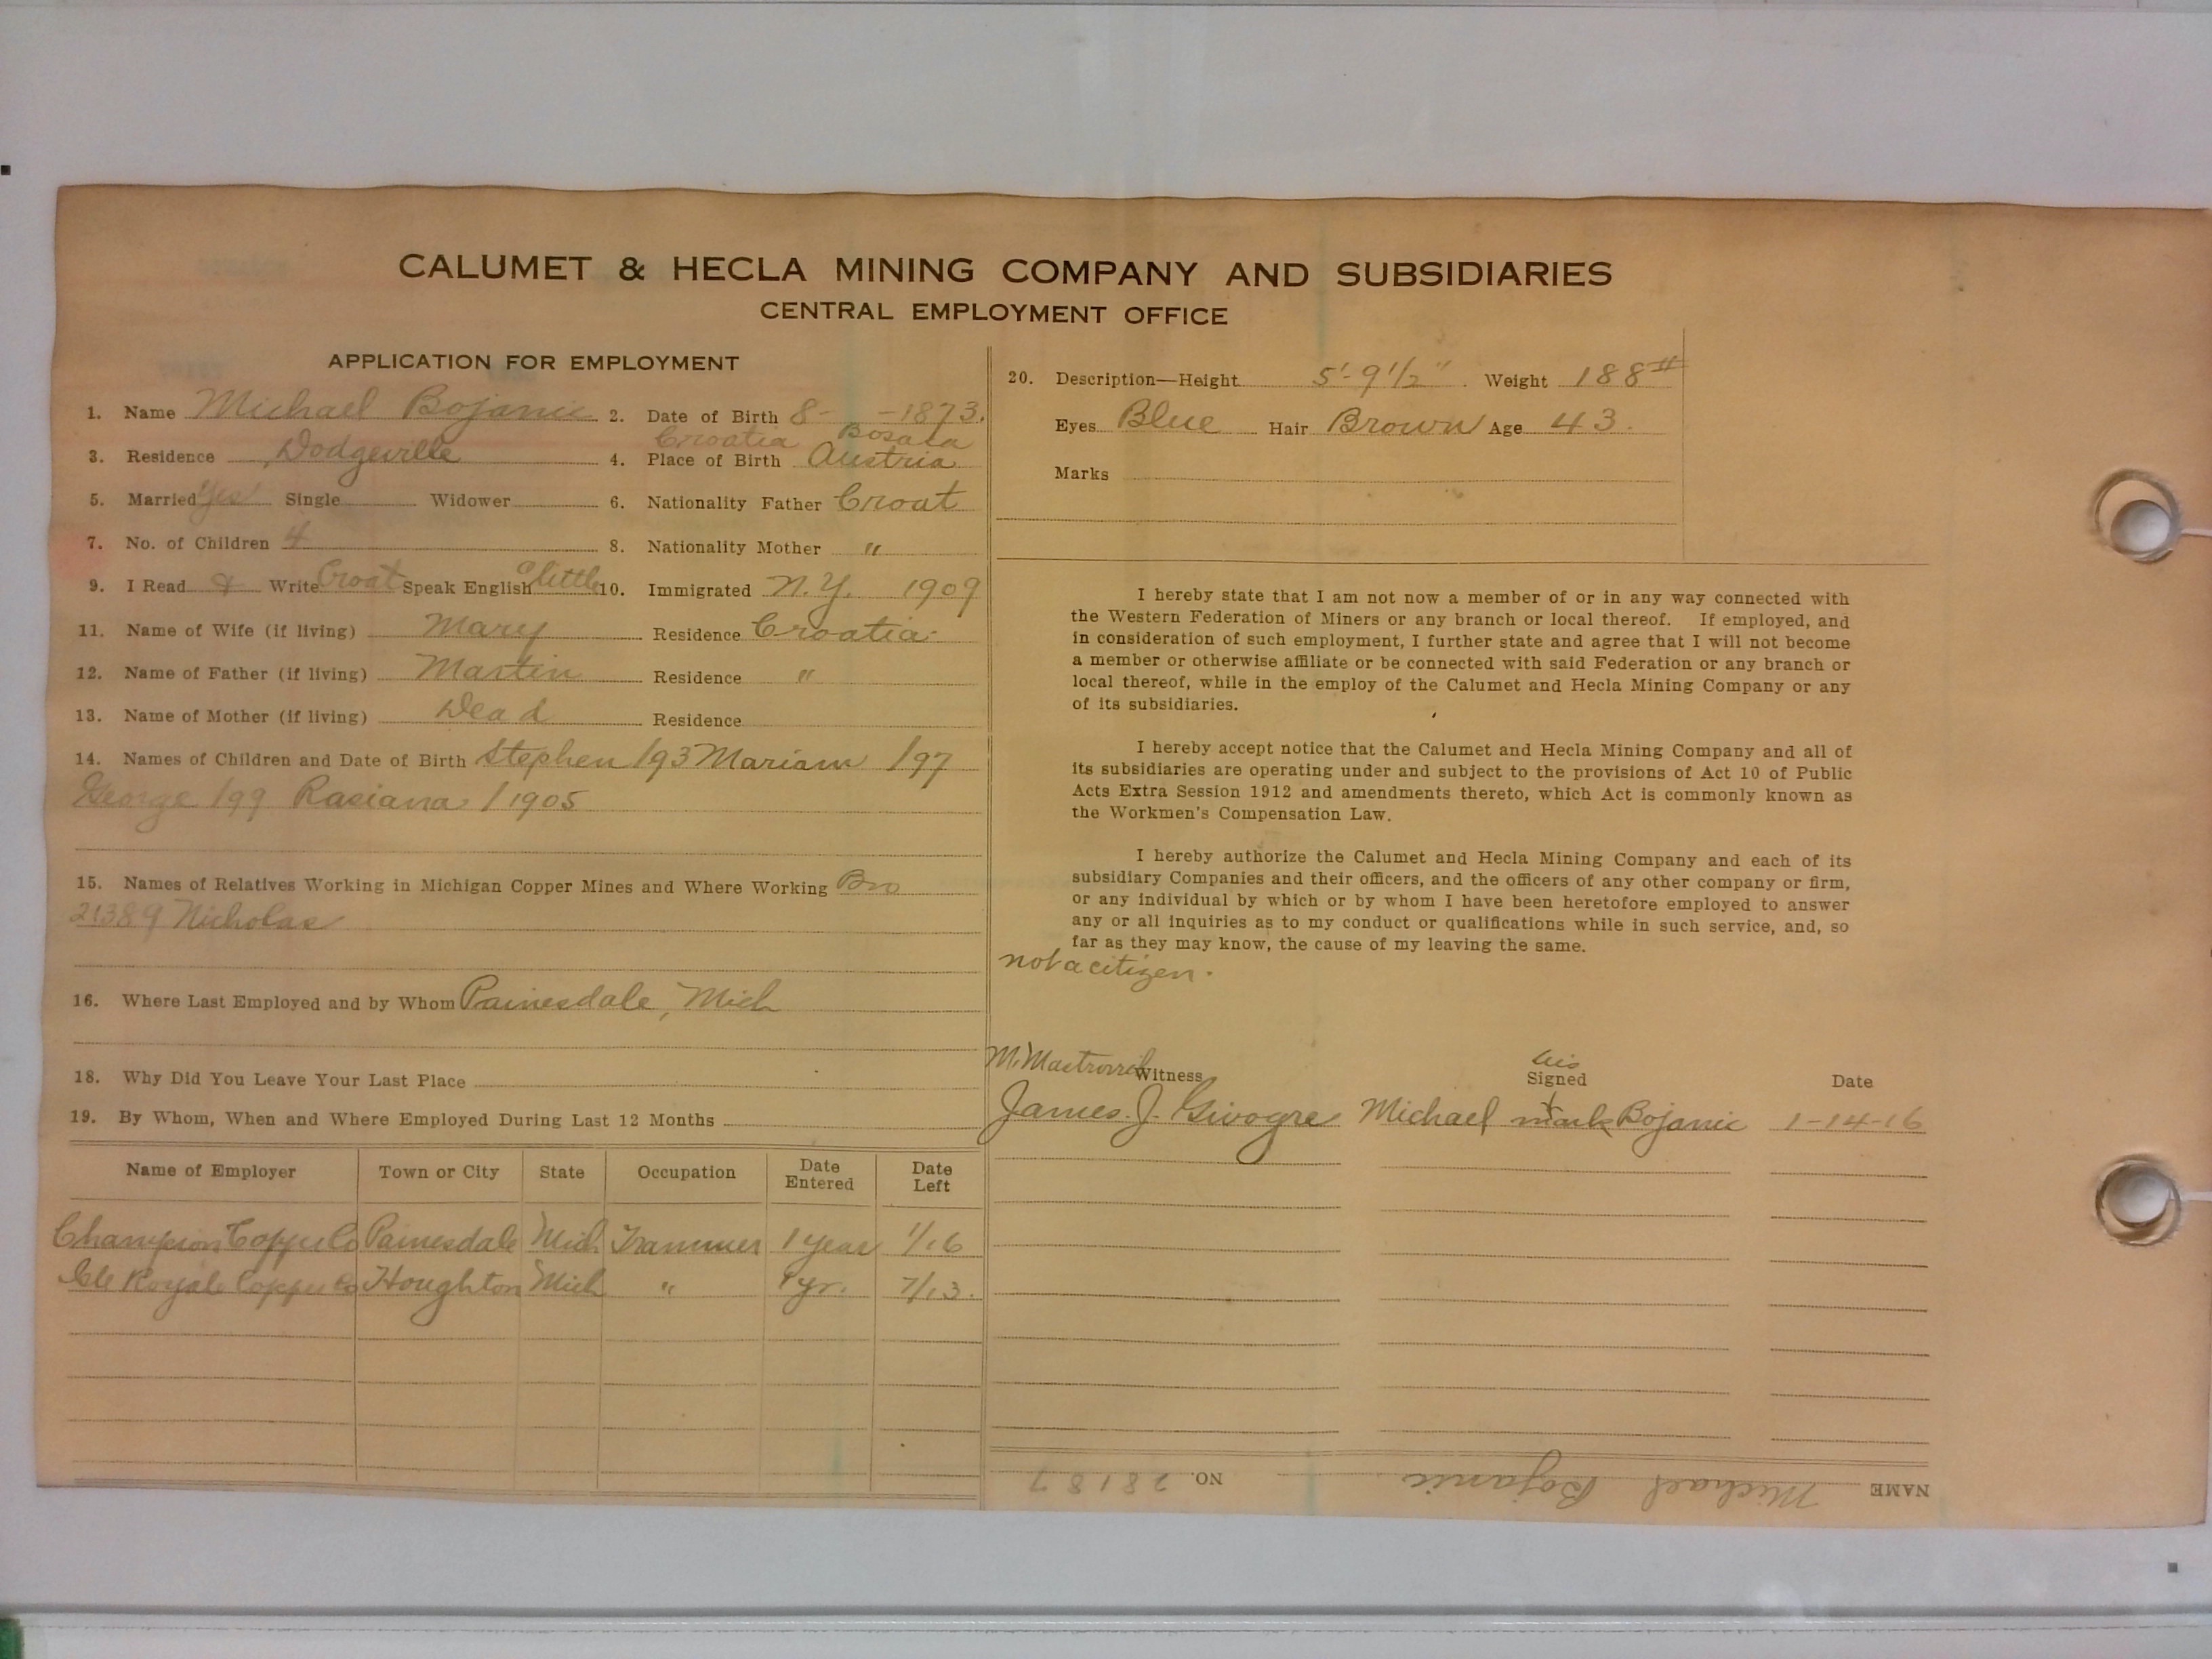 CALUMET & HECLA MINING COMPANY AND SUBSIDIARIES
CENTRAL EMPLOYMENT OFFICE
APPLICATION FOR EMPLOYMENT
1. Name Michael Bojanic 2. Date of Birth 8- -1873.
Croatia Bosaca
3. Residence Dodgeville 4. Place of Birth Austria
5. Married Yes Single Widower 6. Nationality Father Croat
7. No. of Children 4 8. Nationality Mother "
9. I Read & Write Croat Speak English a little 10. Immigrated N.Y. 1909
11. Name of Wife (if living) Mary Residence Croatia
12. Name of Father (if living) Martin Residence "
13. Name of Mother (if living) Dead Residence
14. Names of Children and Date of Birth Stephen /93 Mariam /97
George /99 Rasiana /1905
15. Names of Relatives Working in Michigan Copper Mines and Where Working Bro
21389 Nicholas
16. Where Last Employed and by Whom Painesdale, Mich
18. Why Did You Leave Your Last Place
19. By Whom, When and Where Employed During Last 12 Months
Name of Employer Town or City State Occupation Date Entered Date Left
Champion Copper Co Painesdale Mich Trammer 1 year 1/16
Isle Royale Copper Co Houghton Mich " 1 yr. 7/13.
20. Description—Height 5'-9 1/2" Weight 188#
Eyes Blue Hair Brown Age 43.
Marks
I hereby state that I am not now a member of or in any way connected with
the Western Federation of Miners or any branch or local thereof. If employed, and
in consideration of such employment, I further state and agree that I will not become
a member or otherwise affiliate or be connected with said Federation or any branch or
local thereof, while in the employ of the Calumet and Hecla Mining Company or any
of its subsidiaries.
I hereby accept notice that the Calumet and Hecla Mining Company and all of
its subsidiaries are operating under and subject to the provisions of Act 10 of Public
Acts Extra Session 1912 and amendments thereto, which Act is commonly known as
the Workmen's Compensation Law.
I hereby authorize the Calumet and Hecla Mining Company and each of its
subsidiary Companies and their officers, and the officers of any other company or firm,
or any individual by which or by whom I have been heretofore employed to answer
any or all inquiries as to my conduct or qualifications while in such service, and, so
far as they may know, the cause of my leaving the same.
not a citizen.
M. Witness his Signed Date
James J. Givogre Michael x mark Bojanic 1-14-16
NAME Michael Bojanic NO. 28187